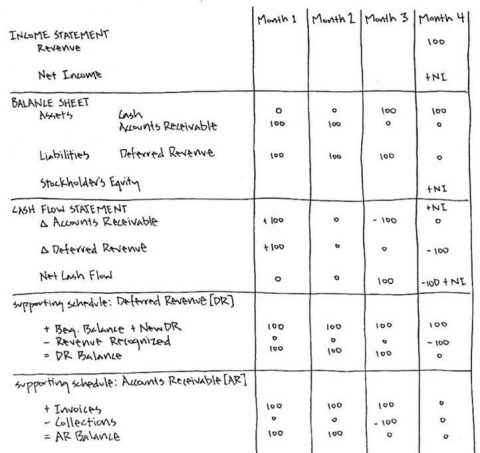 Month 1 Month 2 Month 3 Month 4
INCOME STATEMENT
Revenue 100
Net Income +NI
BALANCE SHEET
Assets Cash 0 0 100 100
Accounts Receivable 100 100 0 0
Liabilities Deferred Revenue 100 100 100 0
Stockholder's Equity +NI
CASH FLOW STATEMENT +NI
Δ Accounts Receivable +100 0 -100 0
Δ Deferred Revenue +100 0 0 -100
Net Cash Flow 0 0 100 -100 + NI
supporting schedule: Deferred Revenue [DR]
+ Beg. Balance + New DR 100 100 100 100
- Revenue Recognized 0 0 0 -100
= DR Balance 100 100 100 0
supporting schedule: Accounts Receivable [AR]
+ Invoices 100 100 100 0
- Collections 0 0 -100 0
= AR Balance 100 100 0 0